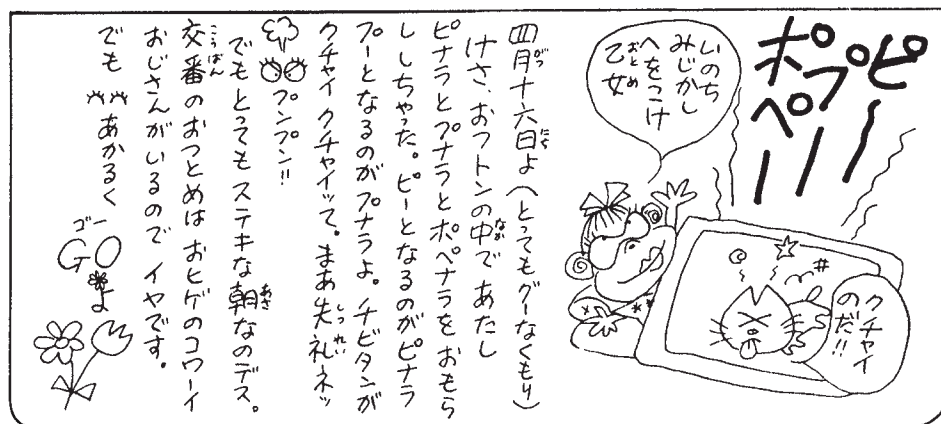 ピー
プー
ポペー
いのち
みじかし
へをこけ
乙女
クチャイ
のだ!!
四月十六日よ(とってもグーなくもり)
けさ、おフトンの中であたし
ピナラとプナラとポペナラをおもら
ししちゃった。ピーとなるのがピナラ
プーとなるのがプナラよ。チビタンが
クチャイ クチャイッて。まあ失礼ネッ
プンプン!!
でも とってもステキな朝なのデス。
交番のおつとめはおヒゲのコワーイ
おじさんがいるので イヤです。
でも あかるく
ゴー
GOよ